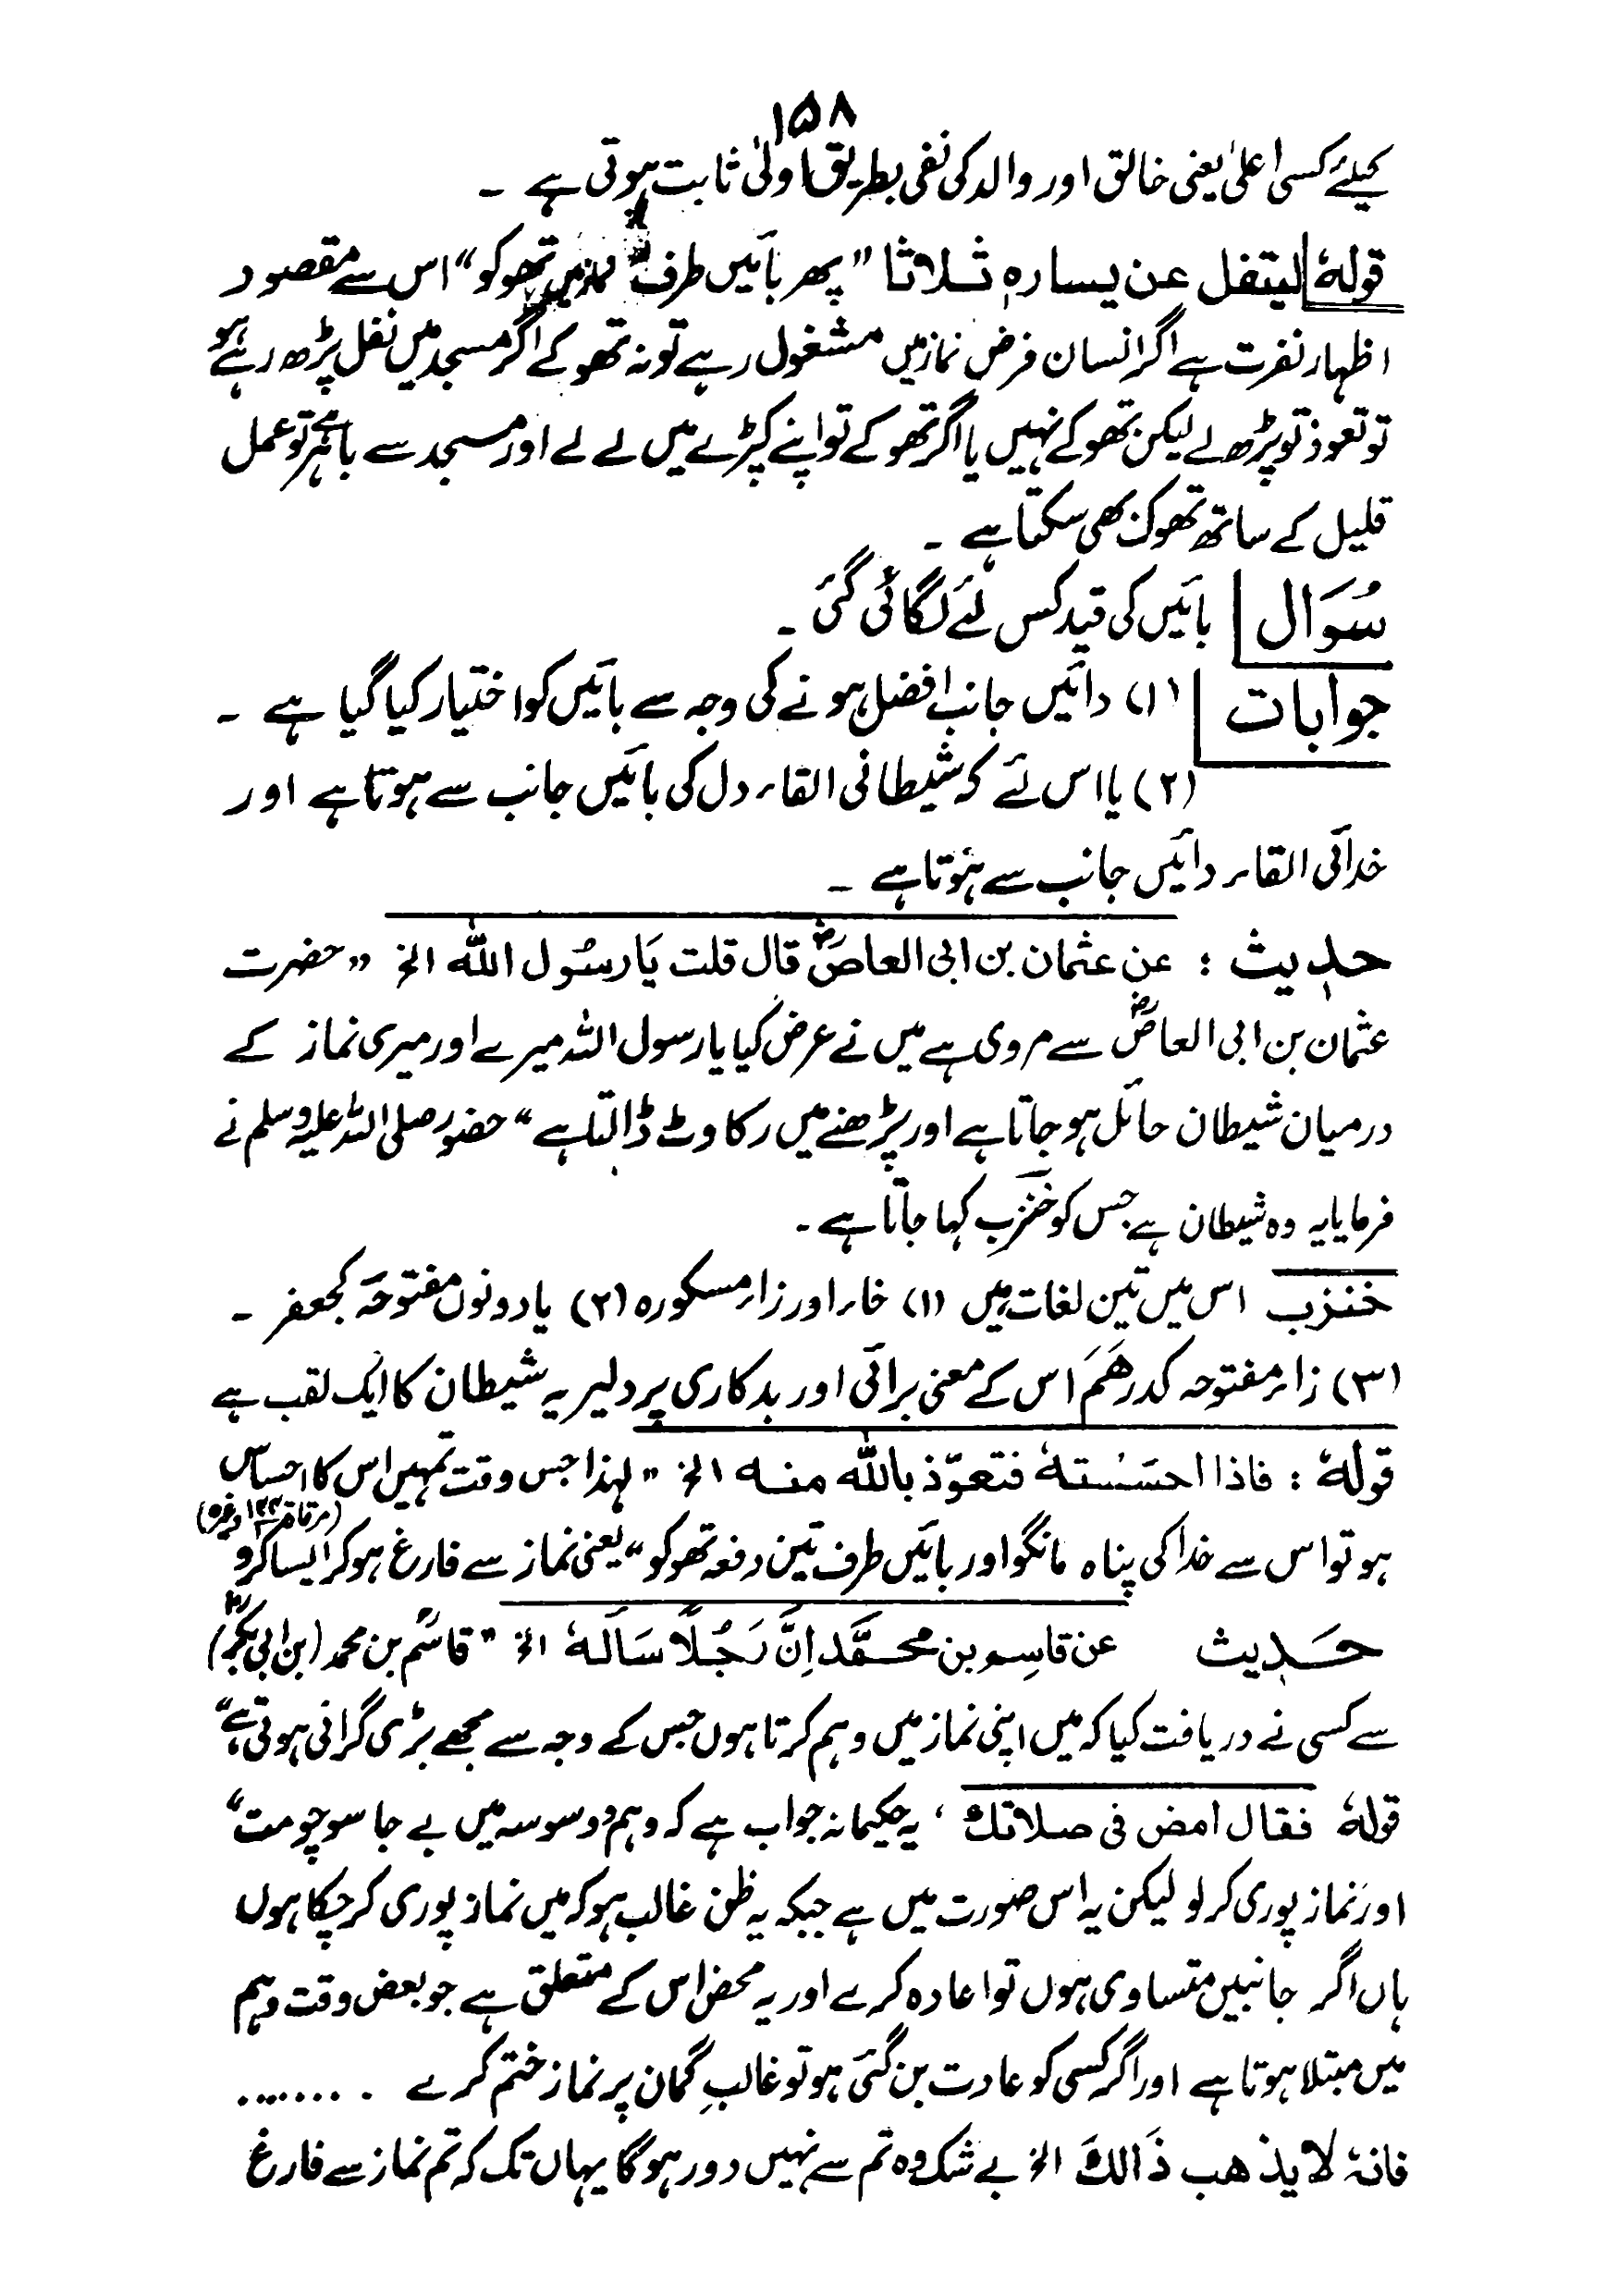 ۱۵۸
کیلئے کسی اعلیٰ یعنی خالق اور والد کی نفی بطریق اولیٰ ثابت ہوتی ہے ۔
قولہٗ لیتفل عن یسارہٖ ثلاثا " پھر بائیں طرف تھوکو " اس سے مقصود
اظہار نفرت ہے اگر انسان فرض نماز میں مشغول رہے تو نہ تھوکے اگر مسجد میں نفل پڑھ رہے ہو
تو تعوذ تو پڑھ لے لیکن تھوکے نہیں یا اگر تھوکے تو اپنے کپڑے میں لے لے اور مسجد سے باہر ہے تو عمل
قلیل کے ساتھ تھوک بھی سکتا ہے ۔
سُوَال بائیں کی قید کس لئے لگائی گئی ۔
جوابات (۱) دائیں جانب افضل ہونے کی وجہ سے بائیں کو اختیار کیا گیا ہے ۔
(۲) یا اس لئے کہ شیطانی القاء دل کی بائیں جانب سے ہوتا ہے اور
خدائی القاء دائیں جانب سے ہوتا ہے ۔
حدیث : عن عثمان بن ابی العاصؓ قال قلت یَا رسُول اللہ الخ " حضرت
عثمان بن ابی العاصؓ سے مروی ہے میں نے عرض کیا یا رسول اللہ میرے اور میری نماز کے
درمیان شیطان حائل ہو جاتا ہے اور پڑھنے میں رکاوٹ ڈالتا ہے " حضور صلی اللہ علیہ وسلم نے
فرمایا یہ وہ شیطان ہے جس کو خنزب کہا جاتا ہے ۔
خنزب اس میں تین لغات ہیں (۱) خاء اور زاء مسکورہ (۲) یا دونوں مفتوحہ کجعفر ۔
(۳) زاء مفتوحہ کدرھَم اس کے معنی برائی اور بدکاری پر دلیر یہ شیطان کا ایک لقب ہے
قولہٗ : فاذا احسَسْتهٗ فتعوّذ باللہ منه الخ " لہذا جس وقت تمہیں اس کا احساس
ہو تو اس سے خدا کی پناہ مانگو اور بائیں طرف تین دفعہ تھوکو " یعنی نماز سے فارغ ہو کر ایسا کرو (مرقاۃ وغیرہ)
حَدِیث عن قاسِم بن محمَّد اِنَّ رَجُلًا سَاَلَهٗ الخ " قاسمؒ بن محمد (بن ابی بکرؓ)
سے کسی نے دریافت کیا کہ میں اپنی نماز میں وہم کرتا ہوں جس کے وجہ سے مجھے بڑی گرانی ہوتی ہے "
قولہٗ فقال امض فی صلاتك ، یہ حکیمانہ جواب ہے کہ وہم و وسوسہ میں بے جا سوچو مت "
اور نماز پوری کر لو لیکن یہ اس صورت میں ہے جبکہ یہ ظن غالب ہو کہ میں نماز پوری کر چکا ہوں
ہاں اگر جانبین متساوی ہوں تو اعادہ کرے اور یہ محض اس کے متعلق ہے جو بعض وقت وہم
میں مبتلا ہوتا ہے اور اگر کسی کو عادت بن گئی ہو تو غالبِ گمان پر نماز ختم کرے ۔ .......
فانهٗ لا یذھب ذَالكَ الخ بے شک وہ تم سے نہیں دور ہو گا یہاں تک کہ تم نماز سے فارغ